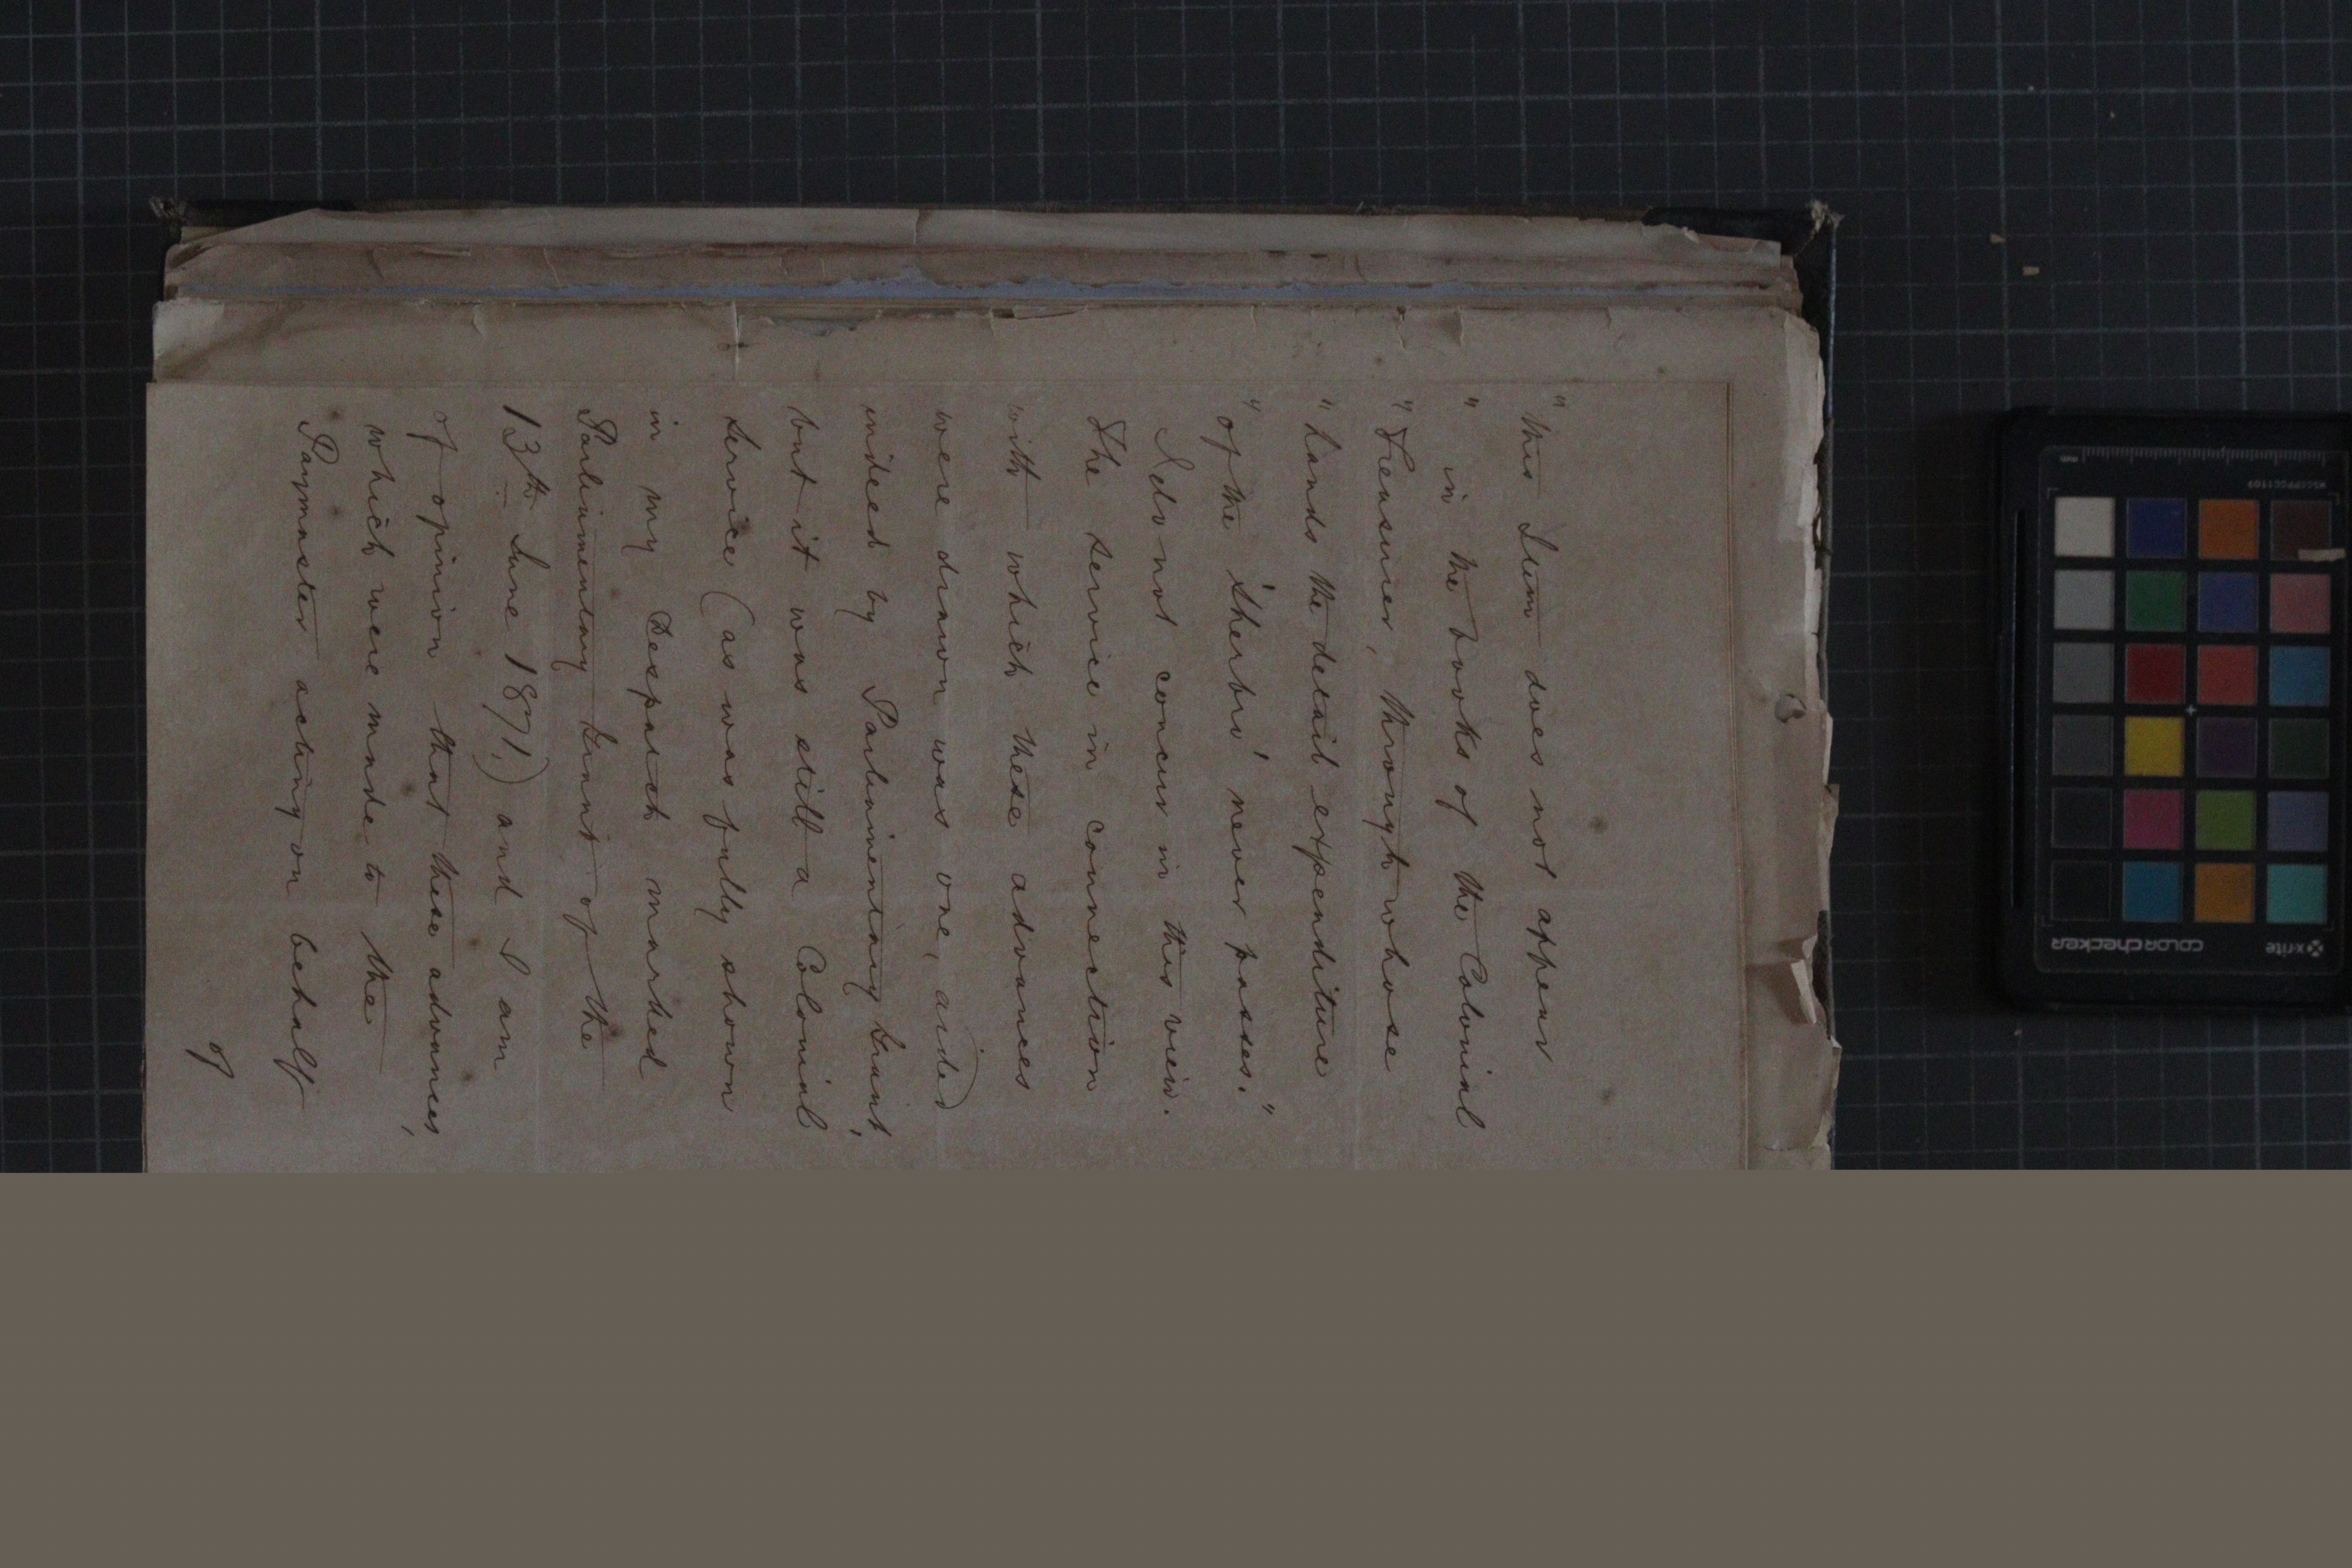 "This Item does not appear
" in the books of the Colonial
" Treasurer, through whose
" hands the detail expenditure
" of the 'Sherbro' never passes."
I do not concur in this view.
The service in connection
with which these advances
were drawn was one, aided
indeed by Parliamentary Grant,
but it was still a Colonial
Service (as was fully shown
in my Despatch marked
Parliamentary Grant of the
13th June 1871,) and I am
of opinion that these advances,
which were made to the
Paymaster acting on behalf
of
x-rite
colorchecker
MSCCPPCC1109
mm